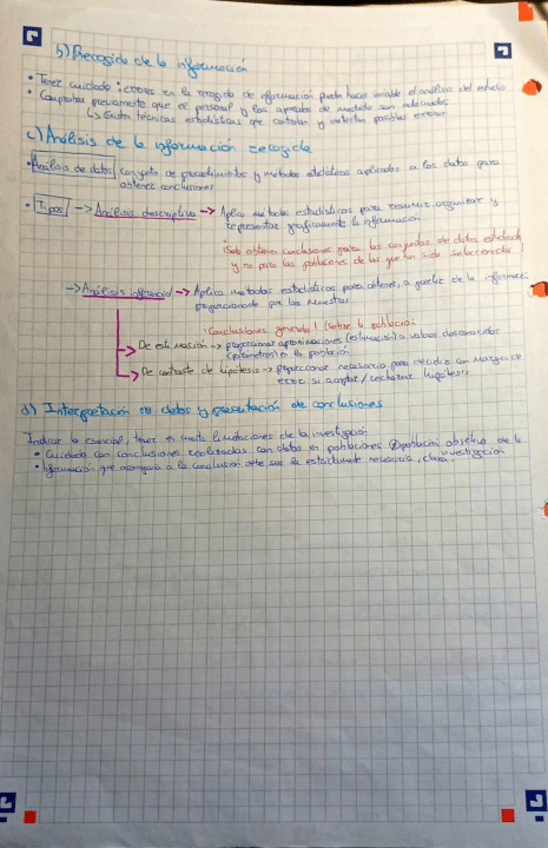 b) Recogida de la información
• Tener cuidado: errores en la recogida de información puede hacer inviable el análisis del estudio
• Comprobar previamente que el personal y los aparatos de medida son adecuados
↳ Existen técnicas estadísticas que controlan y detectan posibles errores
c) Análisis de la información recogida
• Análisis de datos conjunto de procedimientos y métodos estadísticos aplicados a los datos para
obtener conclusiones
• Tipos -> Análisis descriptivo -> Aplica métodos estadísticos para resumir, organizar y
representar gráficamente la información
¡Solo obtienen conclusiones para los conjuntos de datos estudiados
y no para las poblaciones de las que han sido seleccionadas!
-> Análisis inferencial -> Aplica métodos estadísticos para obtener, a partir de la información
proporcionada por las muestras
¡Conclusiones generales! (sobre la población
-> De estimación -> proporcionar aproximaciones (estimación) a valores desconocidos
(parámetros) en la población
-> De contraste de hipótesis -> proporcionar necesario para decidir con margen de
error si aceptar / rechazar hipótesis
d) Interpretación de datos y presentación de conclusiones
Indicar lo esencial, tener en cuenta limitaciones de la investigación
• Cuidado con conclusiones realizadas con datos en poblaciones población objetivo de la
investigación
• Información que acompaña a la conclusión debe ser la estrictamente necesaria, clara